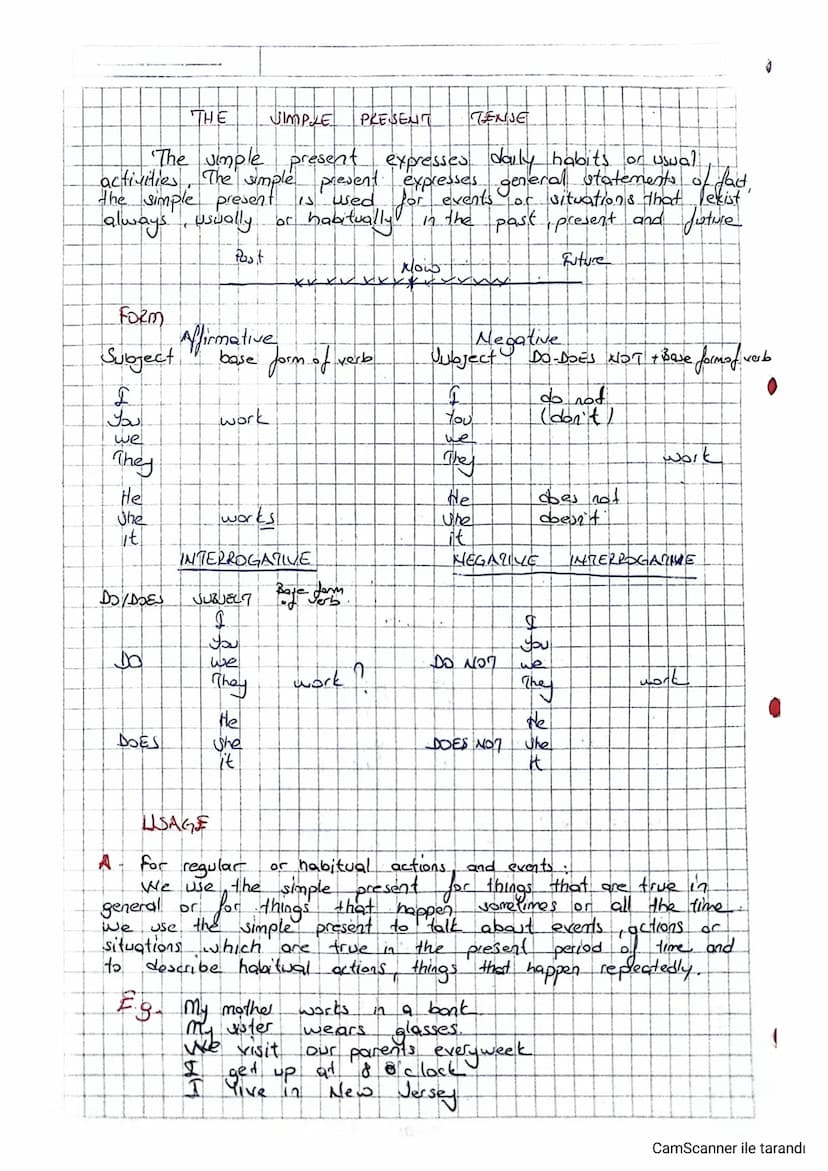 THE SIMPLE PRESENT TENSE
The simple present expresses daily habits or usual
activities. The simple present expresses general statements of fact,
the simple present is used for events or situations that exist
always, usually or habitually in the past, present and future
Past Now Future
FORM
Affirmative Negative
Subject base form of verb Subject DO-DOES NOT + Base form of verb
I I do not
You work You (don't)
we we
They They work
He He does not
She works She doesn't
it it
INTERROGATIVE NEGATIVE INTERROGATIVE
DO/DOES SUBJECT Base form of verb
I I
You You
DO we DO NOT we
They work? They work
He He
DOES She DOES NOT She
it it
USAGE
A - for regular or habitual actions and events:
We use the simple present for things that are true in
general or for things that happen sometimes or all the time.
We use the simple present to talk about events, actions or
situations which are true in the present period of time and
to describe habitual actions, things that happen repeatedly.
E.g. My mother works in a bank
My sister wears glasses.
We visit our parents everyweek
I get up at 8 o'clock
I live in New Jersey
CamScanner ile tarandı